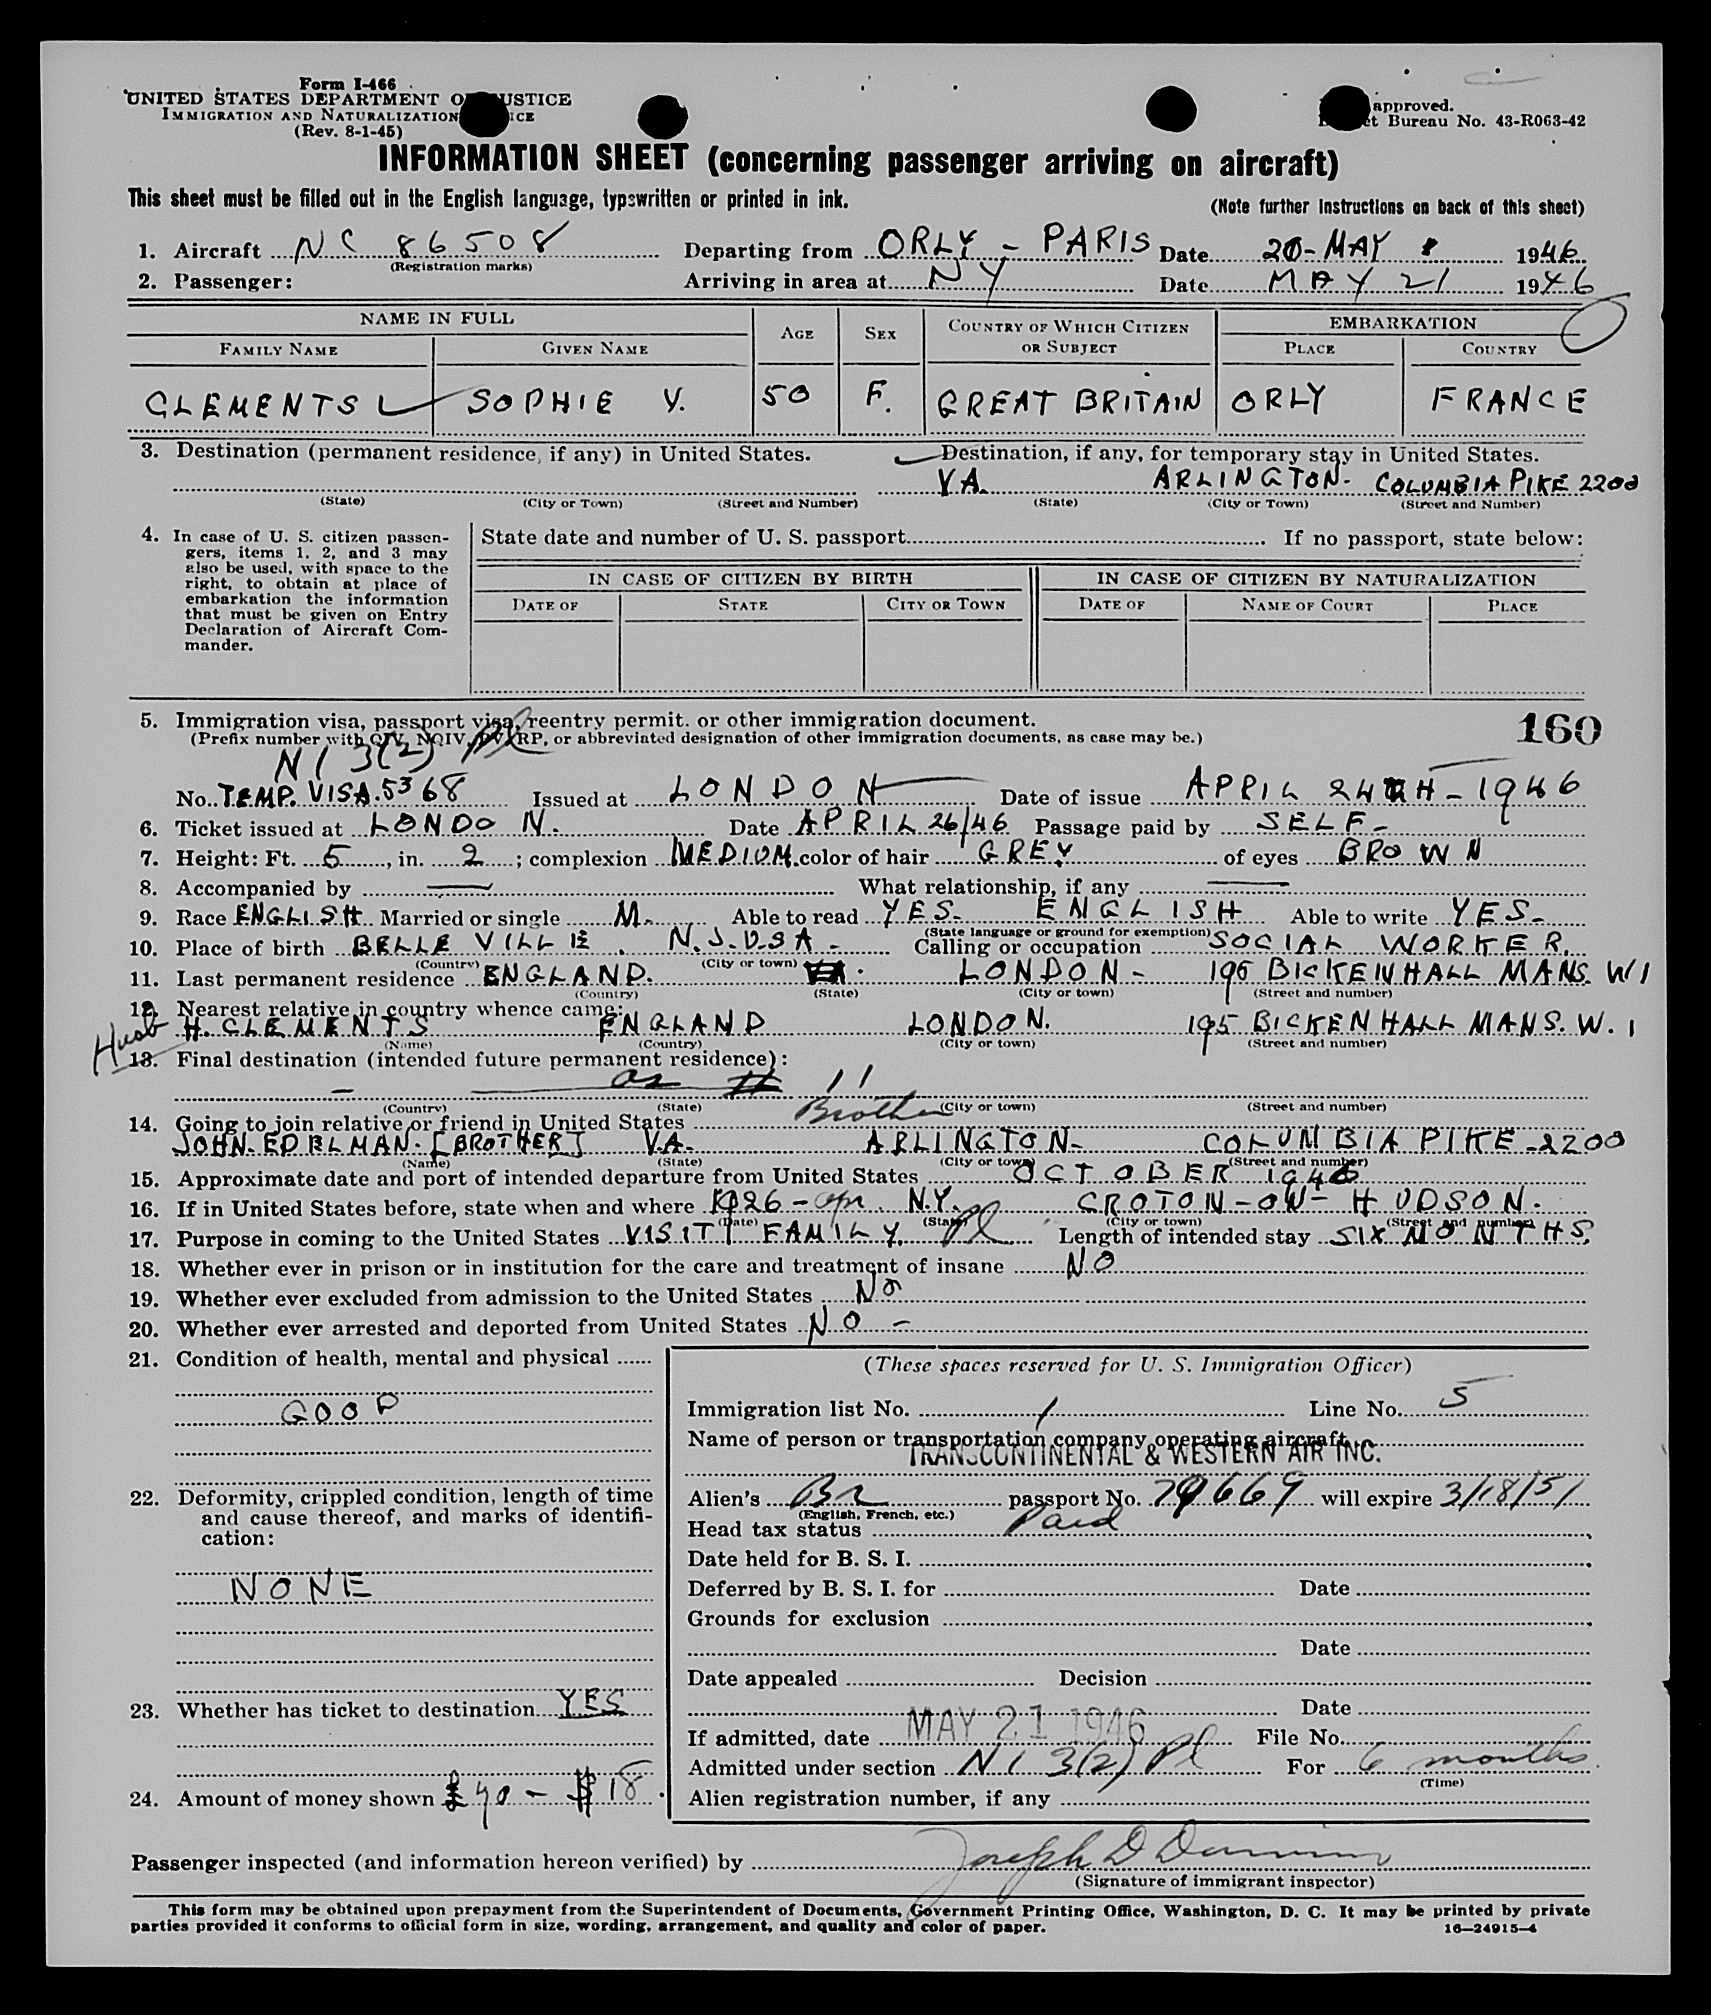 Form I-466
UNITED STATES DEPARTMENT O USTICE
IMMIGRATION AND NATURALIZATION ICE
(Rev. 8-1-45)
approved.
et Bureau No. 43-R063-42
INFORMATION SHEET (concerning passenger arriving on aircraft)
This sheet must be filled out in the English language, typewritten or printed in ink.
(Note further instructions on back of this sheet)
1. Aircraft NC 86508 Departing from ORLY - PARIS Date 20-MAY 1946
(Registration marks)
2. Passenger: Arriving in area at NY Date MAY 21 1946
NAME IN FULL AGE SEX COUNTRY OF WHICH CITIZEN OR SUBJECT EMBARKATION
FAMILY NAME GIVEN NAME PLACE COUNTRY
CLEMENTS SOPHIE V. 50 F. GREAT BRITAIN ORLY FRANCE
3. Destination (permanent residence, if any) in United States. Destination, if any, for temporary stay in United States.
VA. ARLINGTON- COLUMBIA PIKE 2200
(State) (City or Town) (Street and Number) (State) (City or Town) (Street and Number)
4. In case of U. S. citizen passen-
gers, items 1, 2, and 3 may
also be used, with space to the
right, to obtain at place of
embarkation the information
that must be given on Entry
Declaration of Aircraft Com-
mander.
State date and number of U. S. passport If no passport, state below:
IN CASE OF CITIZEN BY BIRTH IN CASE OF CITIZEN BY NATURALIZATION
DATE OF STATE CITY OR TOWN DATE OF NAME OF COURT PLACE
5. Immigration visa, passport visa, reentry permit, or other immigration document.
160
(Prefix number with QIV, NQIV, PV, RP, or abbreviated designation of other immigration documents, as case may be.)
NI 3(2) Pl
No. TEMP. VISA. 5368 Issued at LONDON Date of issue APRIL 24TH - 1946
6. Ticket issued at LONDON. Date APRIL 26/46 Passage paid by SELF-
7. Height: Ft. 5, in. 2; complexion MEDIUM. color of hair GREY of eyes BROWN
8. Accompanied by — What relationship, if any —
9. Race ENGLISH Married or single M. Able to read YES- ENGLISH Able to write YES-
(State language or ground for exemption)
10. Place of birth BELLEVILLE. N.J. USA- Calling or occupation SOCIAL WORKER.
(Country) (City or town)
11. Last permanent residence ENGLAND. LONDON- 195 BICKENHALL MANS. W1
(Country) (State) (City or town) (Street and number)
12. Nearest relative in country whence came:
Husb H. CLEMENTS ENGLAND LONDON. 195 BICKENHALL MANS. W.1
(Name) (Country) (City or town) (Street and number)
13. Final destination (intended future permanent residence):
- as # 11
(Country) (State) (City or town) (Street and number)
14. Going to join relative or friend in United States Brother
JOHN EDELMAN. [BROTHER] VA. ARLINGTON- COLUMBIA PIKE-2200
(Name) (State) (City or town) (Street and number)
15. Approximate date and port of intended departure from United States OCTOBER 1946
16. If in United States before, state when and where 1926- N.Y. CROTON-ON-HUDSON.
(Date) (State) (City or town) (Street and number)
17. Purpose in coming to the United States VISIT FAMILY. Pl Length of intended stay SIX MONTHS.
18. Whether ever in prison or in institution for the care and treatment of insane NO
19. Whether ever excluded from admission to the United States NO
20. Whether ever arrested and deported from United States NO -
21. Condition of health, mental and physical
GOOD
22. Deformity, crippled condition, length of time
and cause thereof, and marks of identifi-
cation:
NONE
23. Whether has ticket to destination YES
24. Amount of money shown £40 - $18.
(These spaces reserved for U. S. Immigration Officer)
Immigration list No. 1 Line No. 5
Name of person or transportation company operating aircraft
TRANSCONTINENTAL & WESTERN AIR INC.
Alien's Br passport No. 79669 will expire 3/18/51
(English, French, etc.)
Head tax status Paid
Date held for B. S. I.
Deferred by B. S. I. for Date
Grounds for exclusion
Date
Date appealed Decision
Date
If admitted, date MAY 21 1946 File No.
Admitted under section NI 3(2) Pl For 6 months
(Time)
Alien registration number, if any
Passenger inspected (and information hereon verified) by Joseph D
(Signature of immigrant inspector)
This form may be obtained upon prepayment from the Superintendent of Documents, Government Printing Office, Washington, D. C. It may be printed by private
parties provided it conforms to official form in size, wording, arrangement, and quality and color of paper. 16—24915-4